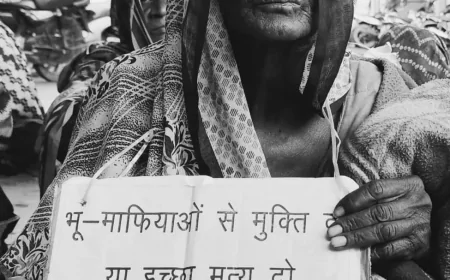 भू-माफियाओं से मुक्ति
या इच्छा मृत्यु दो